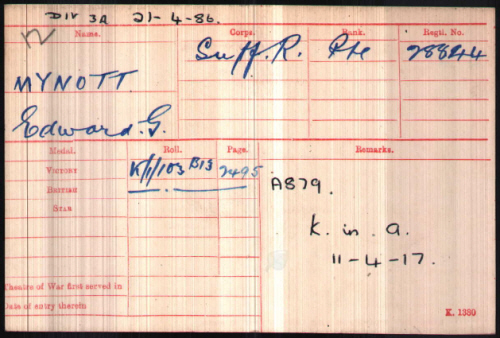 DIV 3A 21-4-86.
Name. Corps. Rank. Regtl. No.
MYNOTT Suff. R. Pte 28844
Edward. G.
Medal. Roll. Page. Remarks.
VICTORY K/1/103 B13 2495
BRITISH
STAR
A879.
K. in. a.
11-4-17.
Theatre of War first served in
Date of entry therein
K. 1380